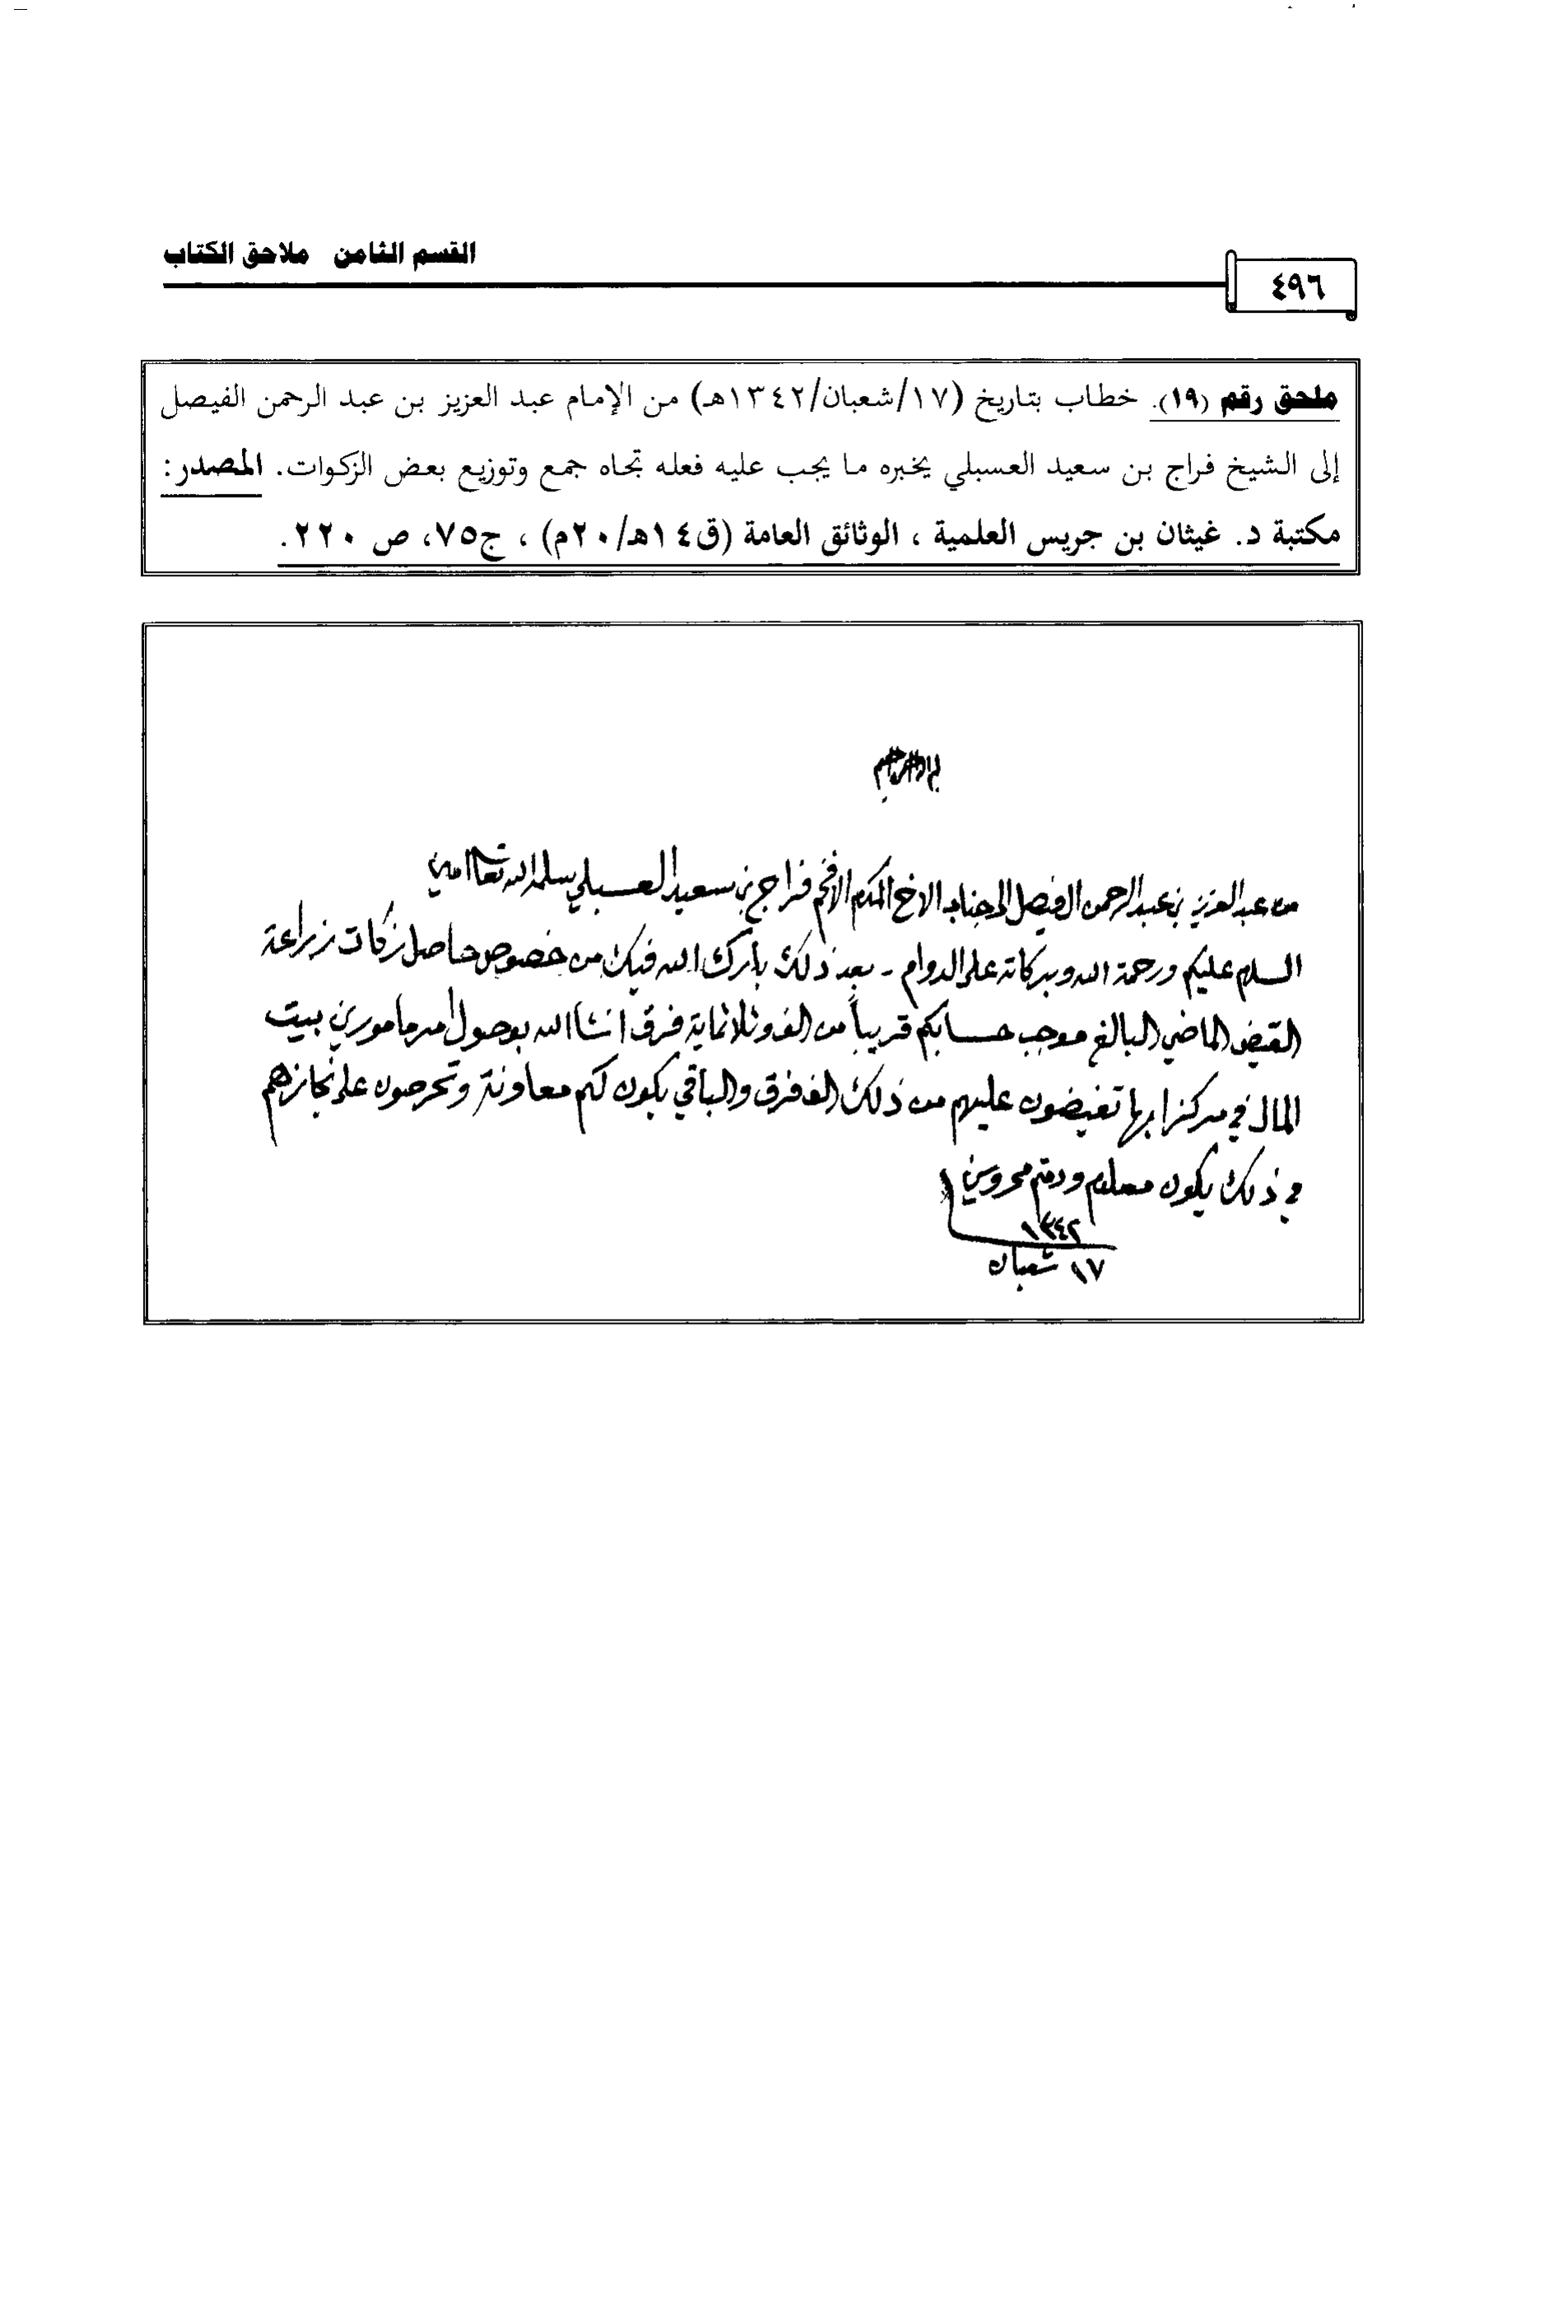 القسم الثامن   ملاحق الكتاب
٤٩٦
ملحق رقم (١٩). خطاب بتاريخ (١٧/شعبان/١٣٤٢هـ) من الإمام عبد العزيز بن عبد الرحمن الفيصل
إلى الشيخ فراج بن سعيد العسبلي يخبره ما يجب عليه فعله تجاه جمع وتوزيع بعض الزكوات. المصدر:
مكتبة د. غيثان بن جريس العلمية ، الوثائق العامة (ق١٤هـ/٢٠م) ، ج٧٥، ص ٢٢٠.
من عبدالعزيز بن عبدالرحمن الفيصل الى جناب الاخ المكرم الافخم فراج بن سعيد العسبلي سلمه الله تعالى امين
السلام عليكم ورحمة الله وبركاته على الدوام - بعد ذلك بارك الله فيك من خصوص حاصل زكات زراعة
القيض الماضي البالغ موجب حسابكم قريباً من الف وثلاثماية فرق انشاالله بوصول امر مامورين بيت
المال في مركز ابها تفيضون عليهم من ذلك الف فرق والباقي يكون لكم معاونة وتحرصون على نجازهم
في ذلك يكون معلوم ودمتم محروسين
١٣٤٢
١٧ شعبان